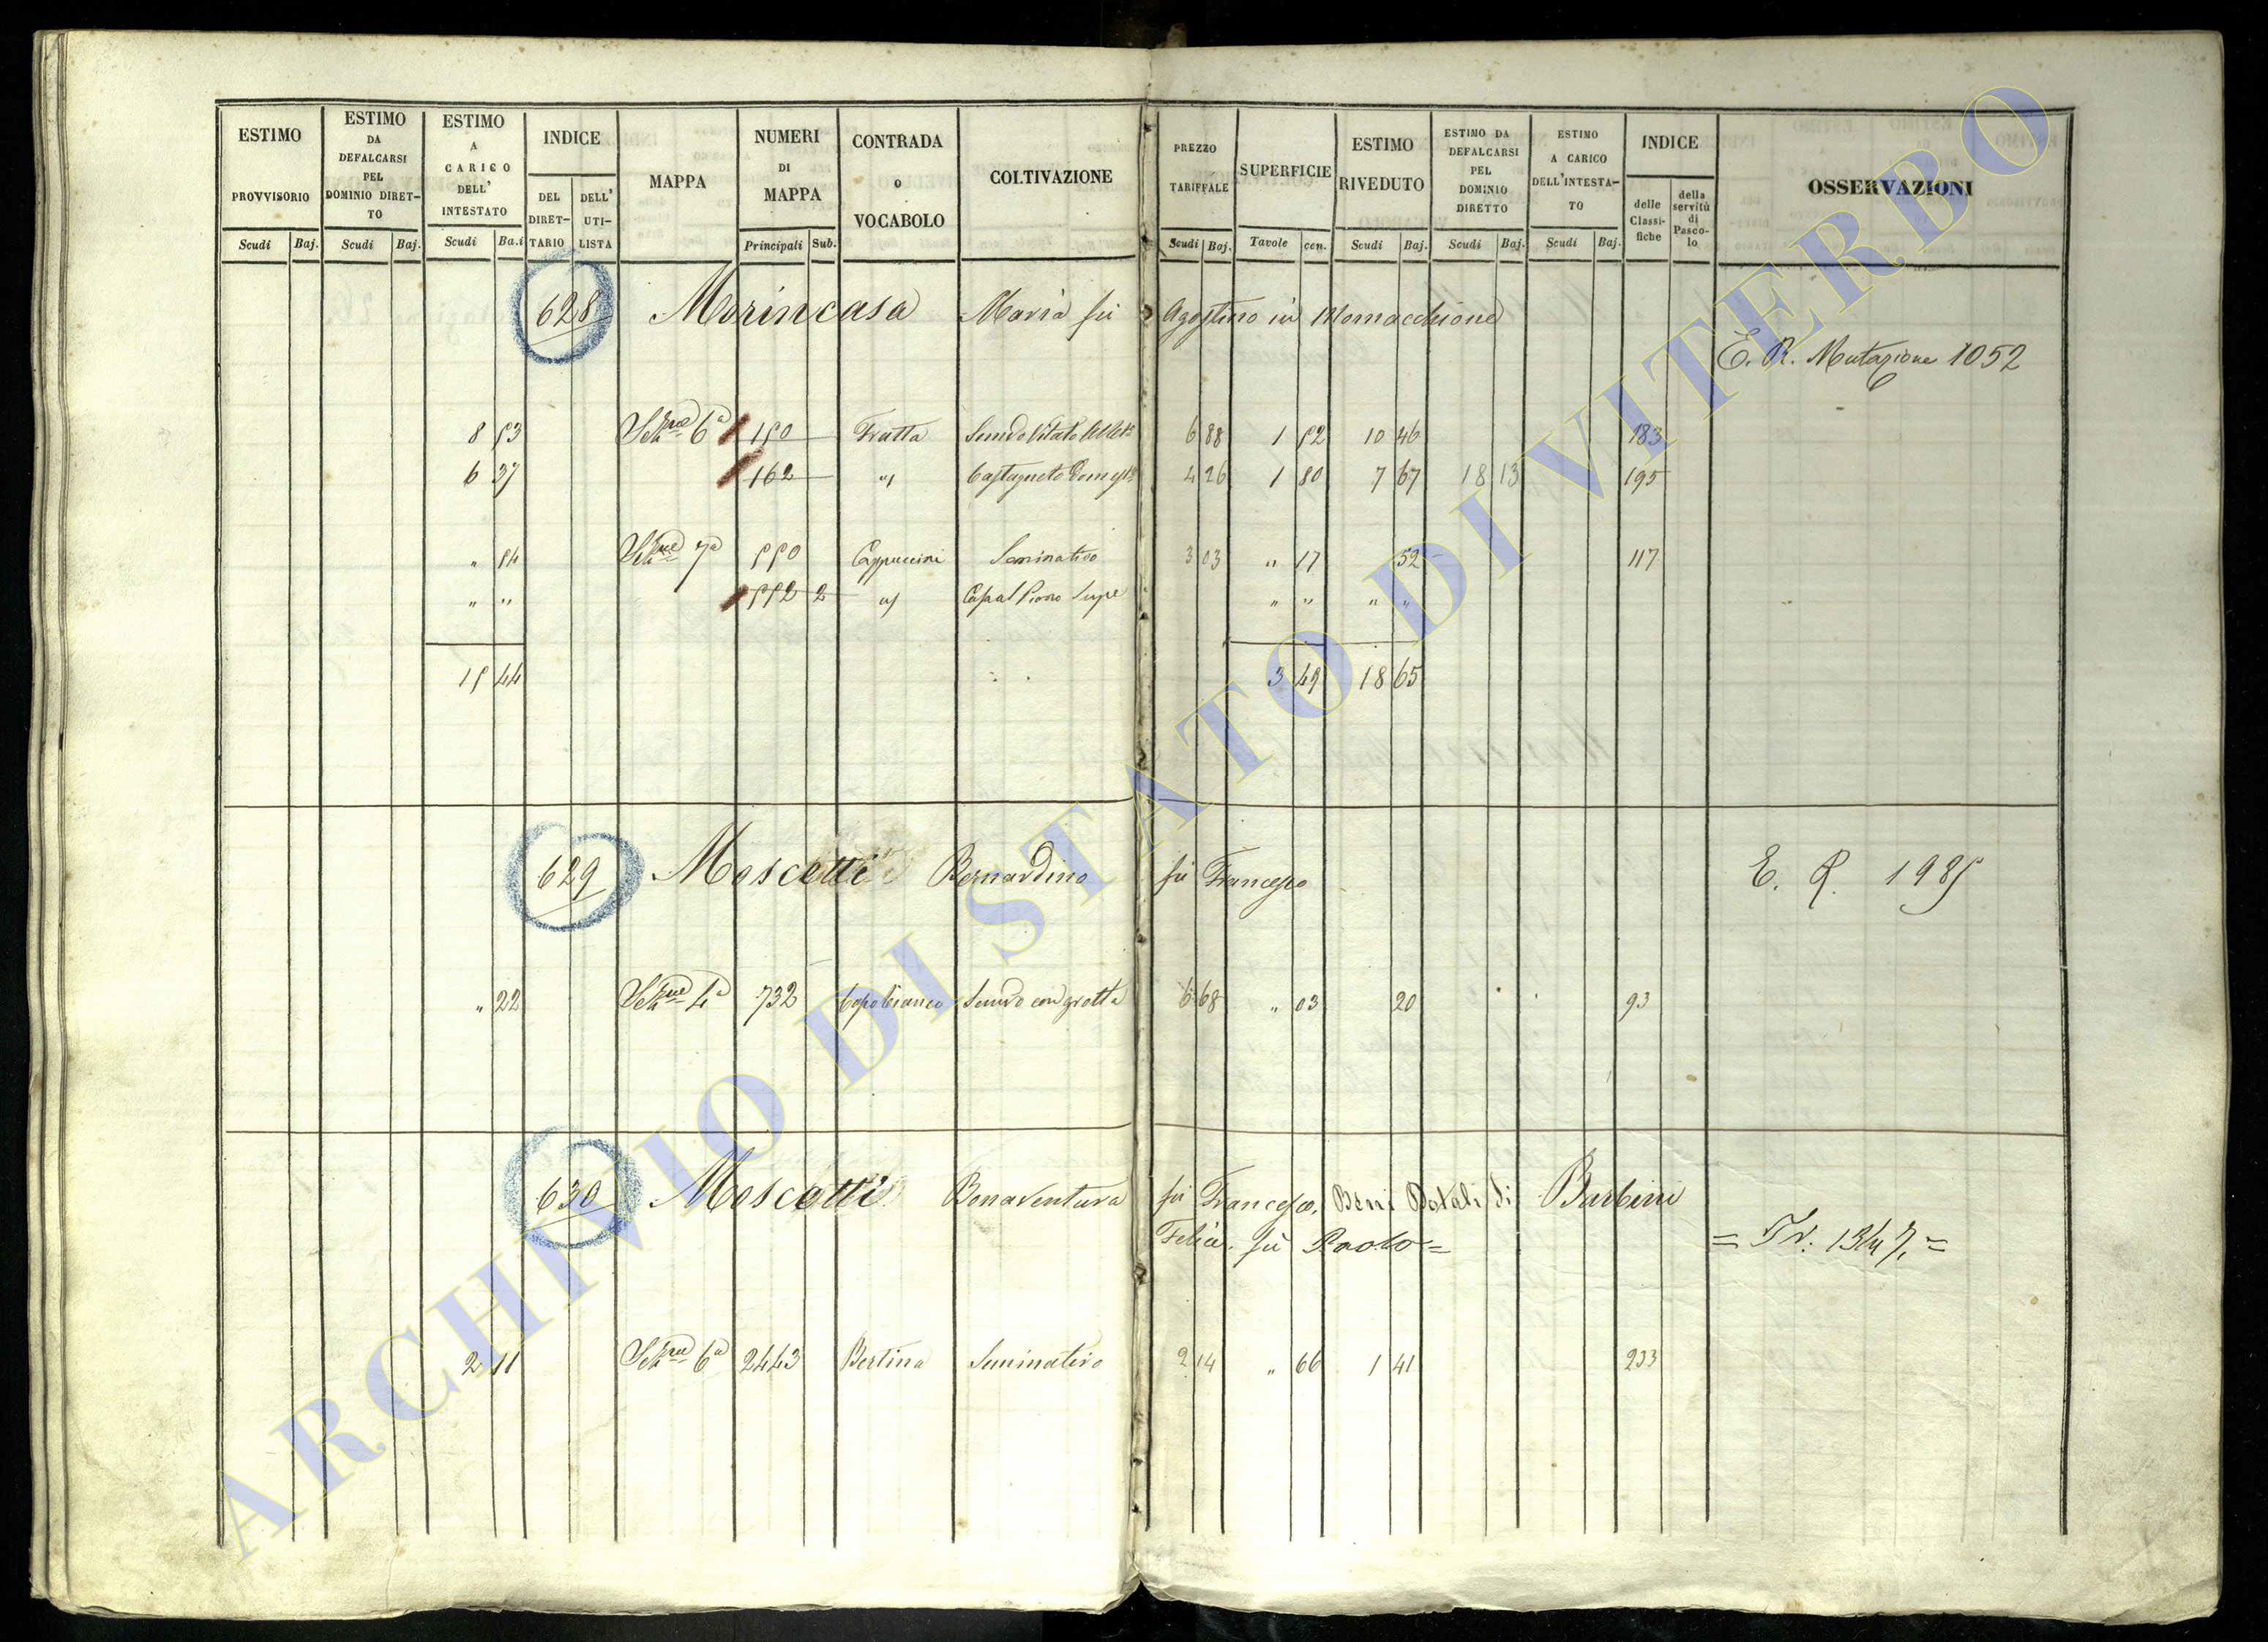 ESTIMO PROVVISORIO Scudi Baj.
ESTIMO DA DEFALCARSI PEL DOMINIO DIRET-TO Scudi Baj.
ESTIMO A CARICO DELL' INTESTATO Scudi Ba.i
INDICE DEL DIRET-TARIO DELL' UTI-LISTA
MAPPA
NUMERI DI MAPPA Principali Sub.
CONTRADA O VOCABOLO
COLTIVAZIONE
PREZZO TARIFFALE Scudi Baj.
SUPERFICIE Tavole cen.
ESTIMO RIVEDUTO Scudi Baj.
ESTIMO DA DEFALCARSI PEL DOMINIO DIRETTO Scudi Baj.
ESTIMO A CARICO DELL'INTESTA-TO Scudi Baj.
INDICE delle Classi-fiche della servitù di Pasco-lo
OSSERVAZIONI
628 Morincasa Maria fù Agostino in Mornacchione
E. R. Mutazione 1052
8 53 Sezne 6a 150 Fratta 6 88 1 52 10 46 183
6 37 162 " Castagneto Domestº 4 26 1 80 7 67 18 13 195
" 54 Sezne 7a 550 Cappuccini Seminativo 3 03 " 17 52 117
" " 552 2 " Casa 1 Piano Supe " " " "
15 44 3 49 18 65
629 Moscetti Bernardino fù Francesco E. R. 1985
" 22 Sezne 4a 732 Capobianco Semvo con grotta 6 68 " 03 20 93
630 Moscatti Bonaventura fù Francesco, Beni Dotali di Barbini
Felice fù Paolo =
= Tr. 1347. =
2 11 Sezne 6a 2443 Bertina Seminativo 2 14 " 66 1 41 233
ARCHIVIO DI STATO DI VITERBO